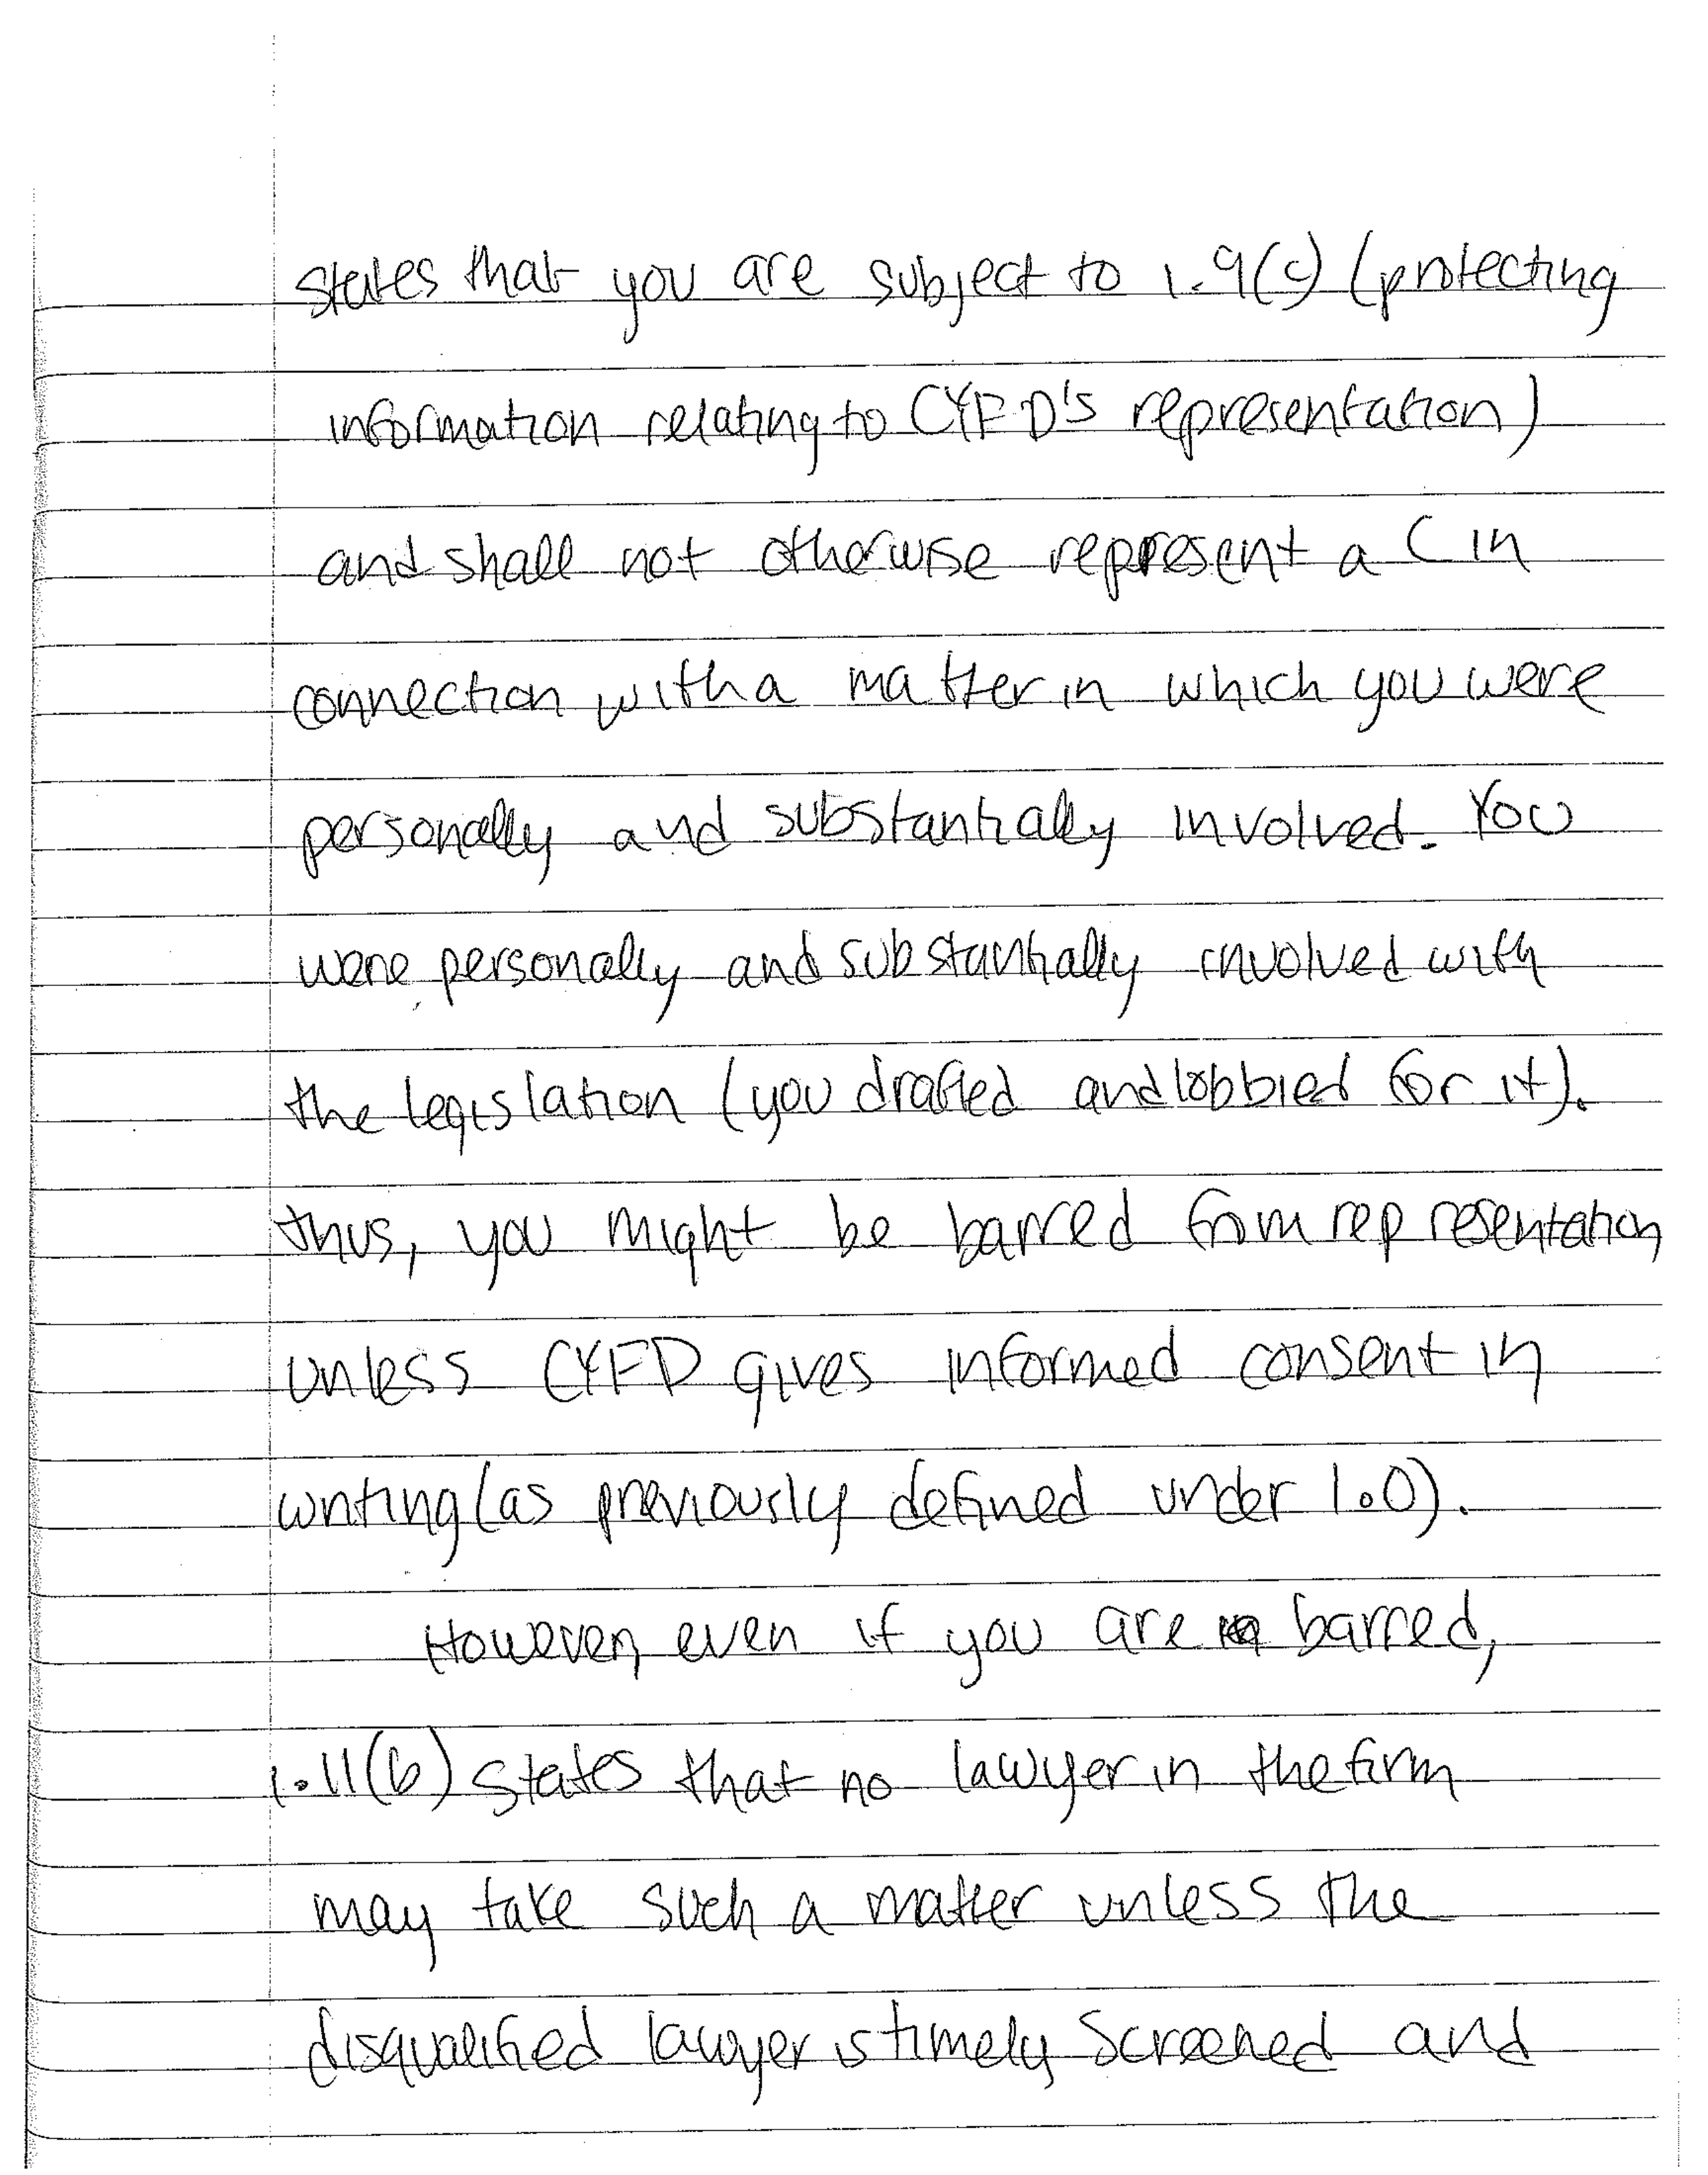 states that you are subject to 1.9(c) (protecting
information relating to CYFD's representation)
and shall not otherwise represent a C in
connection with a matter in which you were
personally and substantially involved. You
were personally and substantially involved with
the legislation (you drafted and lobbied for it).
thus, you might be barred from representation
unless CYFD gives informed consent in
writing (as previously defined under 1.0).
However, even if you are barred,
1.11(b) states that no lawyer in the firm
may take such a matter unless the
disqualified lawyer is timely screened and